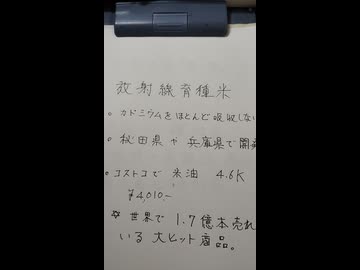 放射線育種米
。カドミウムをほとんど吸収しない
。秋田県や兵庫県で開
。コストコで 米油 4.6K
¥4,010-
☆世界で1.7億本売れ
いる大ヒット商品。